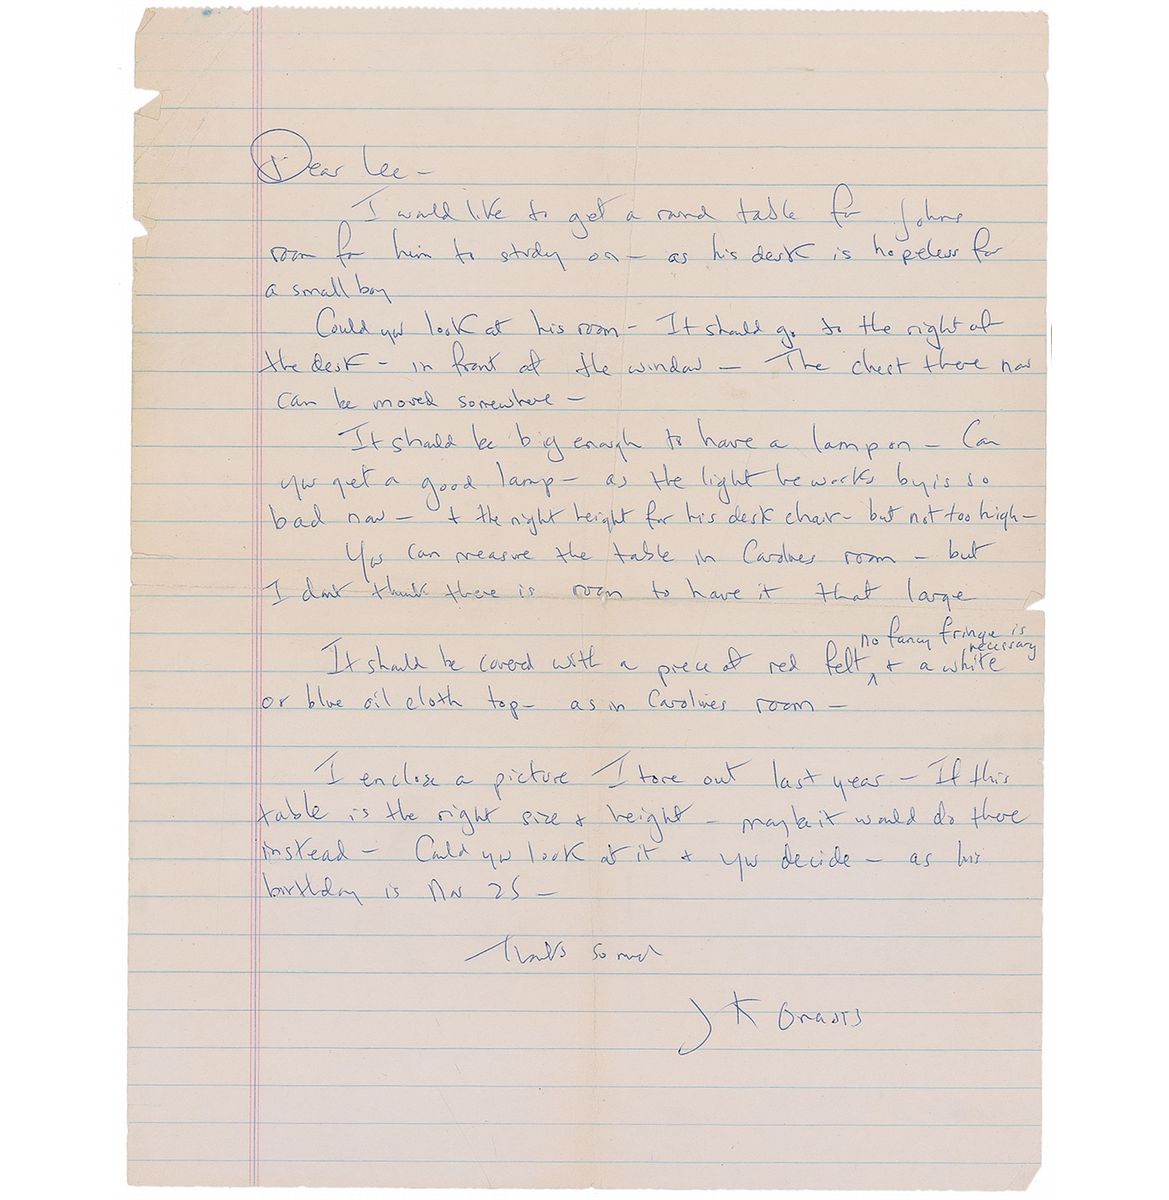 Dear Lee -
I would like to get a round table for Johns
room for him to study on - as his desk is hopeless for
a small boy
Could you look at his room - It should go to the right of
the desk - in front of the window - The chest there now
can be moved somewhere -
It should be big enough to have a lamp on - Can
you get a good lamp - as the light he works by is so
bad now - + the right height for his desk chair - but not too high -
You can measure the table in Carolines room - but
I dont think there is room to have it that large
no fancy fringe is
necessary
It should be covered with a piece of red felt ^ + a white
or blue oil cloth top - as in Carolines room -
I enclose a picture I tore out last year - If this
table is the right size + height - maybe it would do there
instead - Could you look at it + you decide - as his
birthday is Nov 25 -
Thanks so much
J K Onassis